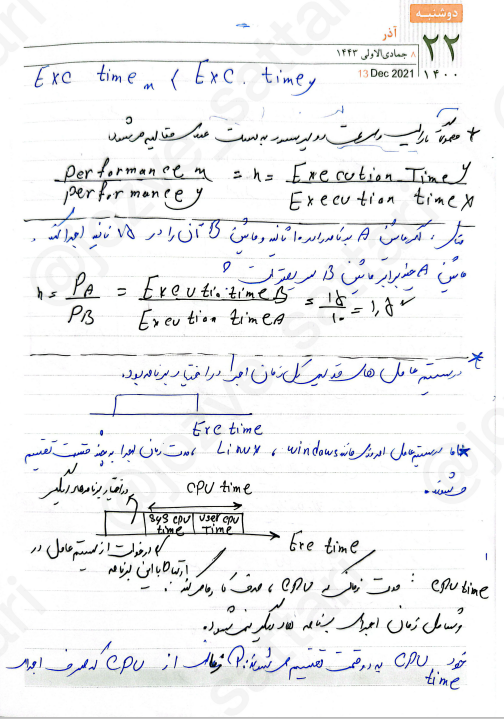 دوشنبه
آذر
۲۲
۸ جمادی‌الاولی ۱۴۴۳
13 Dec 2021 | ۱۴۰۰
Exc time m < Exc. time y
* معمولاً کارایی و سرعت دو پردیسور به نسبت عددی مقایسه می‌شود
performance m / performance y = n = Execution Time y / Execution time x
مثال: اگر ماشین A برنامه را در ۱۰ ثانیه و ماشین B آن را در ۱۵ ثانیه اجرا کند،
ماشین A چند برابر ماشین B سریعتر است ؟
n = PA / PB = Exeution time B / Exeution time A = ۱۵ / ۱۰ = ۱,۵ ✓
* در سیستم عامل های قدیمی کل زمان اجرا در اختیار برنامه بود.
Exe time
* اما سیستم عامل امروزی مانند windows ، Linux ، مدت زمان اجرا به چند قسمت تقسیم
می‌شود.
در اختیار برنامه‌های دیگر
CPU time
sys cpu time
user cpu Time
Exe time
درخواست از سیستم عامل در
ارتباط با این برنامه
CPU time : مدت زمانی که CPU ، صرف کار ما می‌کند :
و شامل زمان اجرای برنامه های دیگر نمی‌شود.
خود CPU time به دو قسمت تقسیم می‌شود: ۱) زمانی از CPU که صرف اجرای